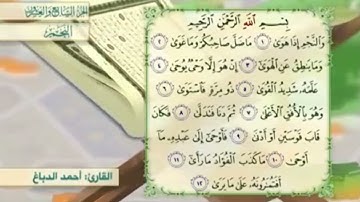 الجزء السابع والعشرون
النجم
بِسْمِ اللَّهِ الرَّحْمَٰنِ الرَّحِيمِ
وَالنَّجْمِ إِذَا هَوَىٰ ١ مَا ضَلَّ صَاحِبُكُمْ وَمَا غَوَىٰ ٢
وَمَا يَنطِقُ عَنِ الْهَوَىٰ ٣ إِنْ هُوَ إِلَّا وَحْيٌ يُوحَىٰ ٤
عَلَّمَهُ شَدِيدُ الْقُوَىٰ ٥ ذُو مِرَّةٍ فَاسْتَوَىٰ ٦
وَهُوَ بِالْأُفُقِ الْأَعْلَىٰ ٧ ثُمَّ دَنَا فَتَدَلَّىٰ ٨ فَكَانَ
قَابَ قَوْسَيْنِ أَوْ أَدْنَىٰ ٩ فَأَوْحَىٰ إِلَىٰ عَبْدِهِ مَا
أَوْحَىٰ ١٠ مَا كَذَبَ الْفُؤَادُ مَا رَأَىٰ ١١
أَفَتُمَارُونَهُ عَلَىٰ مَا يَرَىٰ ١٢
القارئ: أحمد الدباغ